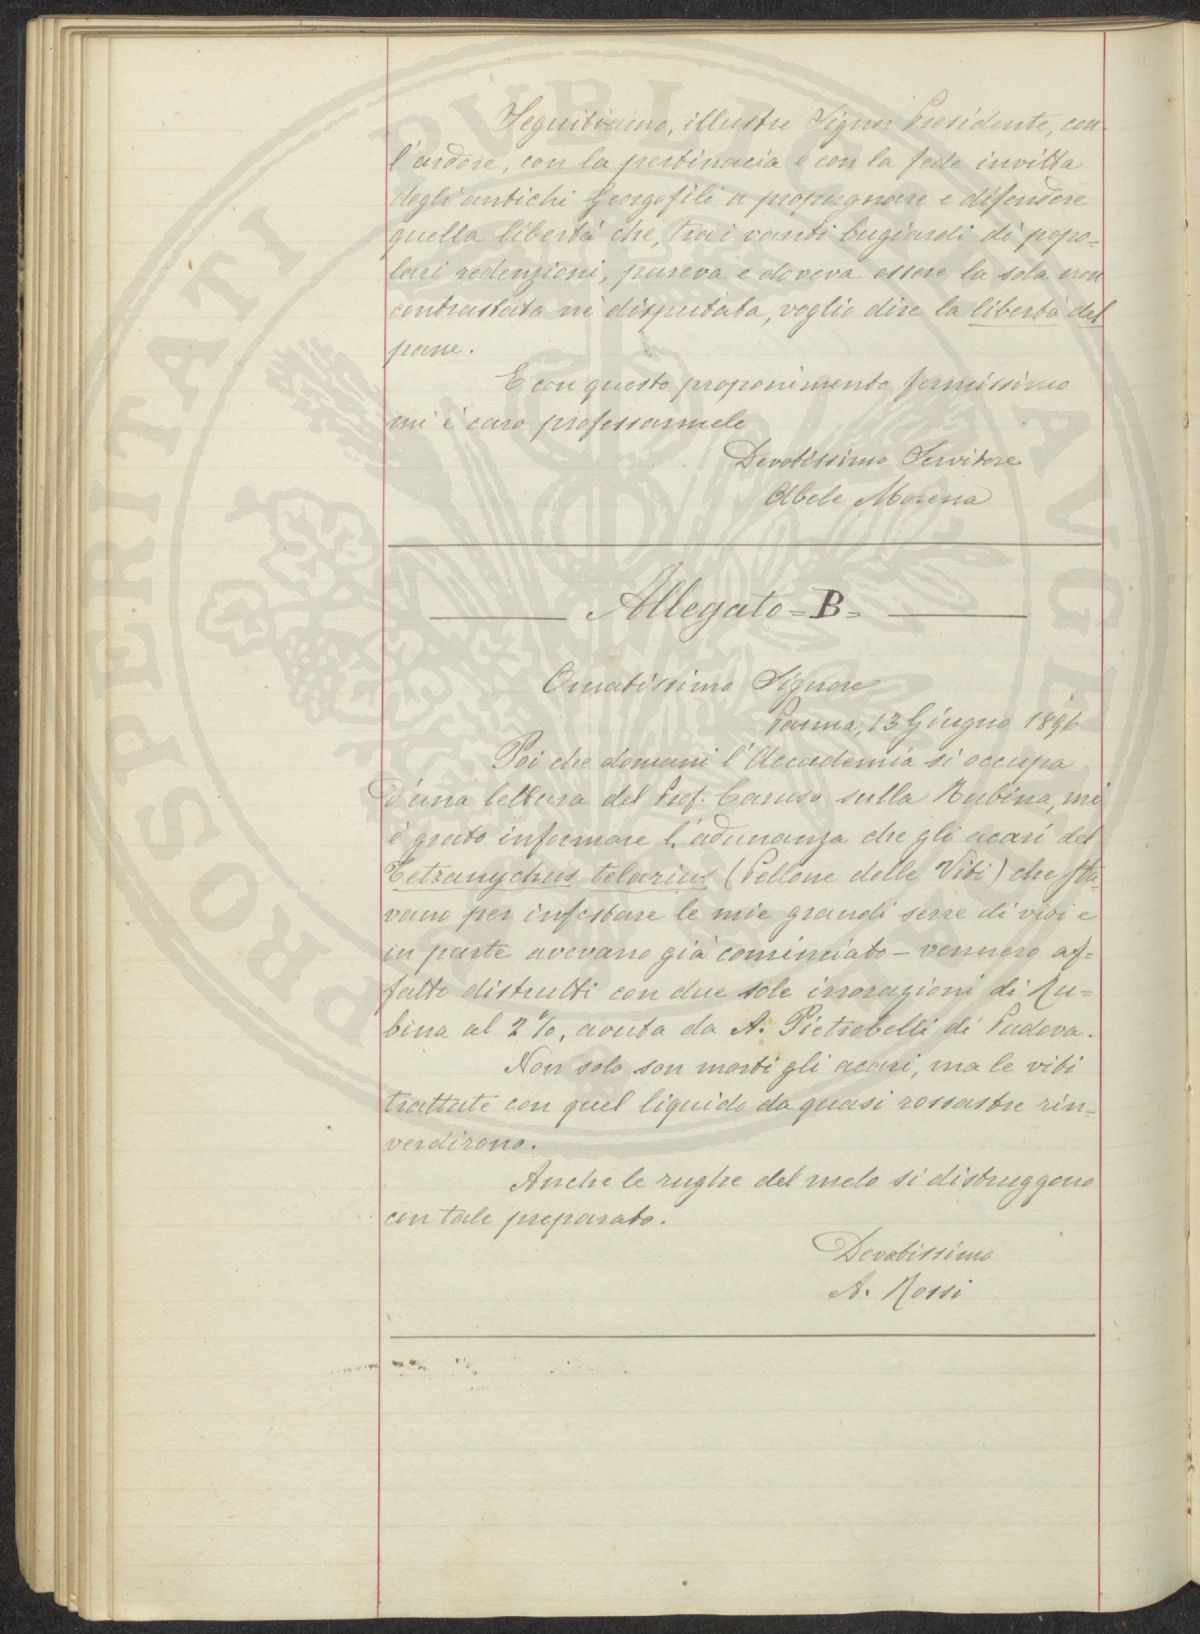 Seguitiamo, illustre Signor Presidente, con
l'ardore, con la pertinacia e con la fede invitta
degli antichi Georgofili a propugnare e difendere
quella libertà che, tra i vanti bugiardi di popo=
lari redenzioni, pareva e doveva essere la sola non
contrastata nè disputata, voglio dire la libertà del
pane.
E con questo proponimento fermissimo
mi è caro professarmele
Devotissimo Servitore
Abele Morena
Allegato = B =
Ornatissimo Signore
Parma, 13 Giugno 1896
Poi che domani l'Accademia si occupa
d'una lettura del Prof. Caruso sulla Rubina, mi
è grato informare l'adunanza che gli acari del
Tetranychus telarius (Pellone delle Viti) che sta=
vano per infestare le mie grandi serre di viti e
in parte avevano già cominciato – vennero af=
fatto distrutti con due sole irrorazioni di Ru=
bina al 2%, avuta da A. Pietrobelli di Padova.
Non solo son morti gli acari, ma le viti
trattate con quel liquido da quasi rossastre rin=
verdirono.
Anche le rughe del melo si distruggono
con tale preparato.
Devotissimo
A. Rossi
PROSPERITATI PVBLICAE AVGENDAE